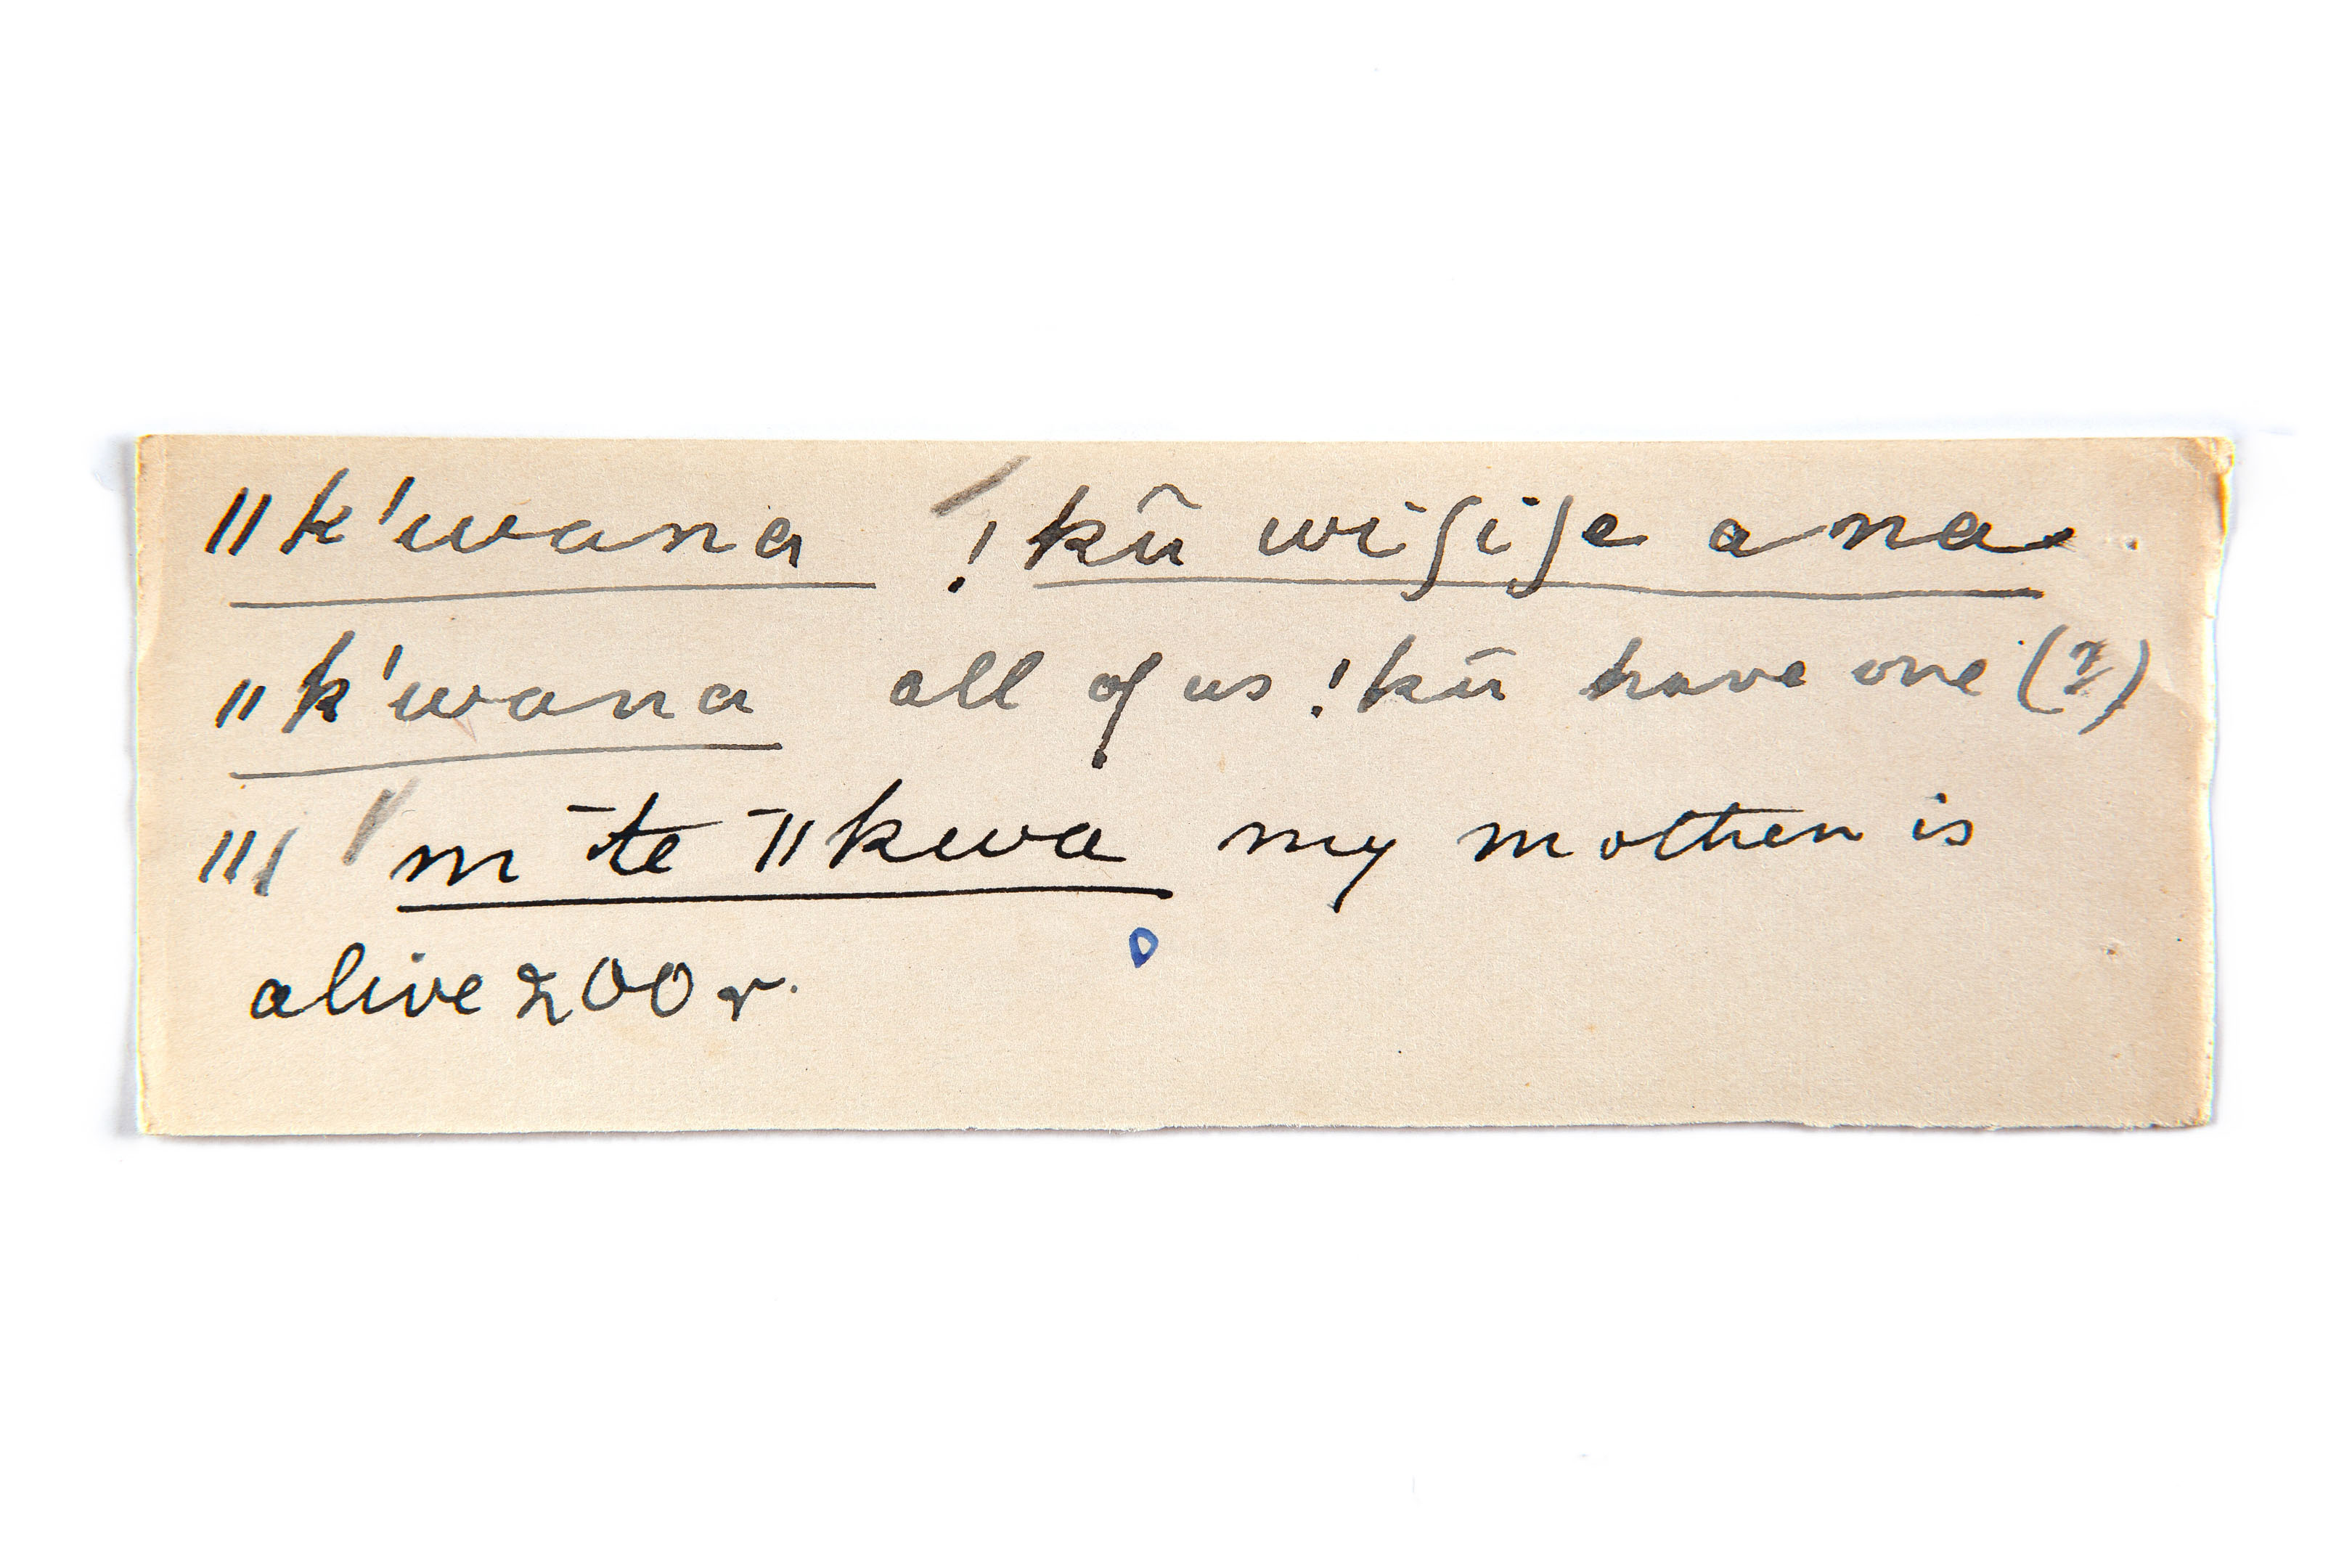 ǁk'wana !kũ wiʃiʃe a na
ǁk'wana all of us !kũ have one (?)
m ̄te ̄ǁkwa my mother is
alive 200 r.